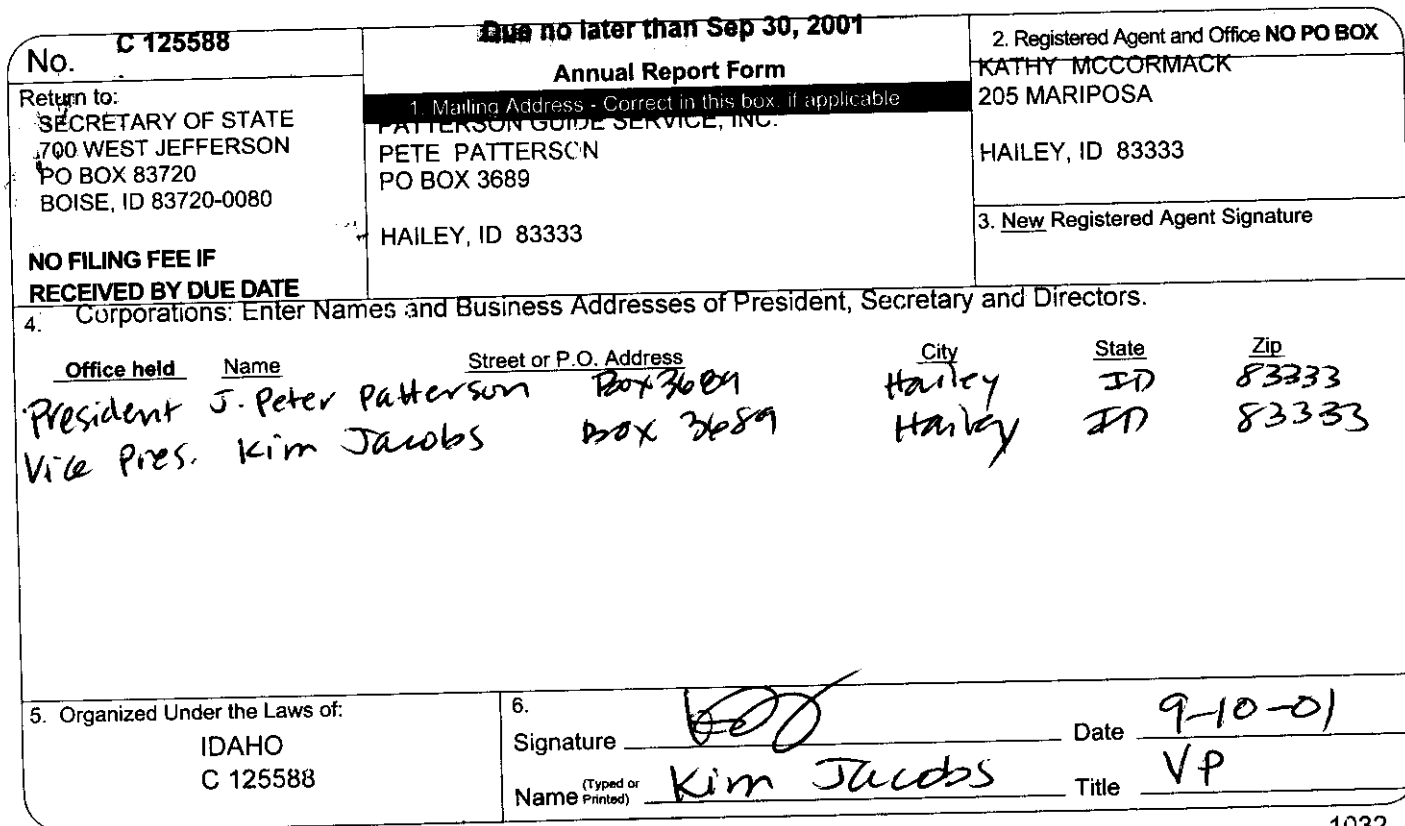 No. C 125588
Return to:
SECRETARY OF STATE
700 WEST JEFFERSON
PO BOX 83720
BOISE, ID 83720-0080
NO FILING FEE IF
RECEIVED BY DUE DATE
Due no later than Sep 30, 2001
Annual Report Form
1. Mailing Address - Correct in this box, if applicable
PATTERSON GUIDE SERVICE, INC.
PETE PATTERSON
PO BOX 3689
HAILEY, ID 83333
2. Registered Agent and Office NO PO BOX
KATHY MCCORMACK
205 MARIPOSA
HAILEY, ID 83333
3. New Registered Agent Signature
4. Corporations: Enter Names and Business Addresses of President, Secretary and Directors.
Office held Name Street or P.O. Address City State Zip
President J. Peter Patterson Box 3689 Hailey ID 83333
Vice Pres. Kim Jacobs Box 3689 Hailey ID 83333
5. Organized Under the Laws of:
IDAHO
C 125588
6.
Signature Date 9-10-01
Name (Typed or Printed) Kim Jacobs Title VP
1032